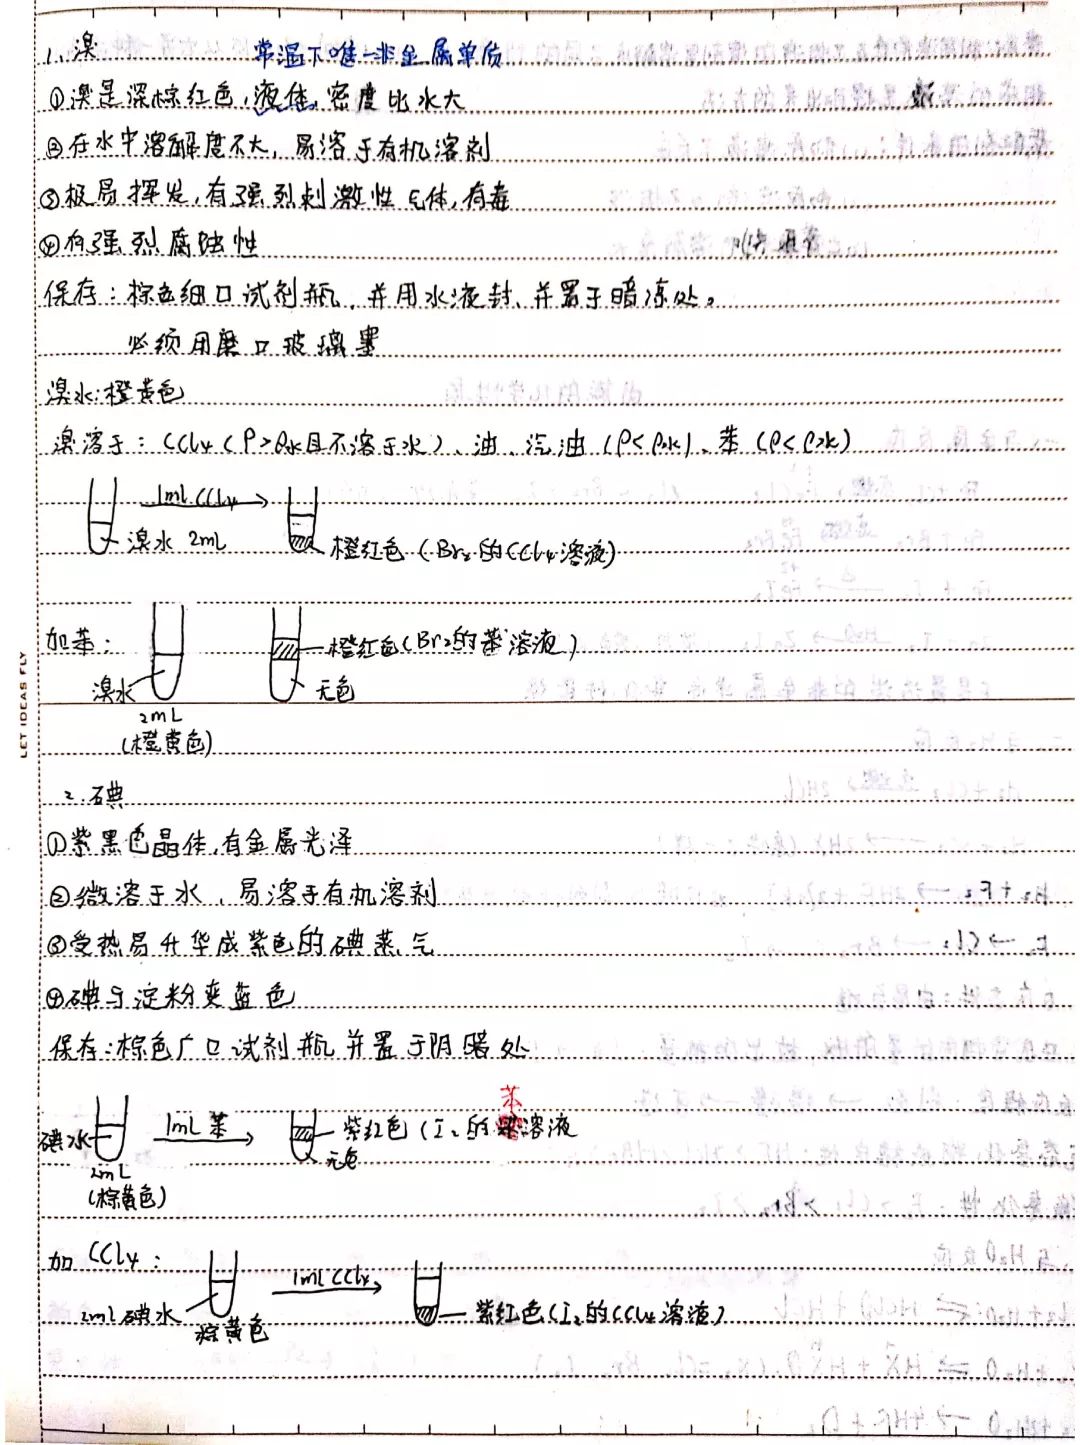 1. 溴 常温下唯一非金属单质
①溴是深棕红色,液体,密度比水大
②在水中溶解度不大,易溶于有机溶剂
③极易挥发,有强烈刺激性气体,有毒
④有强烈腐蚀性
保存:棕色细口试剂瓶,并用水液封,并置于暗冻处。
必须用磨口玻璃塞
溴水:橙黄色
溴溶于:CCl₄(ρ>ρ水且不溶于水)、油、汽油(ρ<ρ水)、苯(ρ<ρ水)
1mL CCl₄
溴水 2mL 橙红色(Br₂的CCl₄溶液)
加苯: 橙红色(Br₂的苯溶液)
溴水 无色
2mL
(橙黄色)
LET IDEAS FLY
2. 碘
①紫黑色晶体,有金属光泽
②微溶于水,易溶于有机溶剂
③受热易升华成紫色的碘蒸气
④碘与淀粉变蓝色
保存:棕色广口试剂瓶并置于阴暗处
苯
碘水 1mL 苯 紫红色(I₂的溶液
2mL 无色
(棕黄色)
加 CCl₄: 1mL CCl₄
2mL碘水 紫红色(I₂的CCl₄溶液)
棕黄色